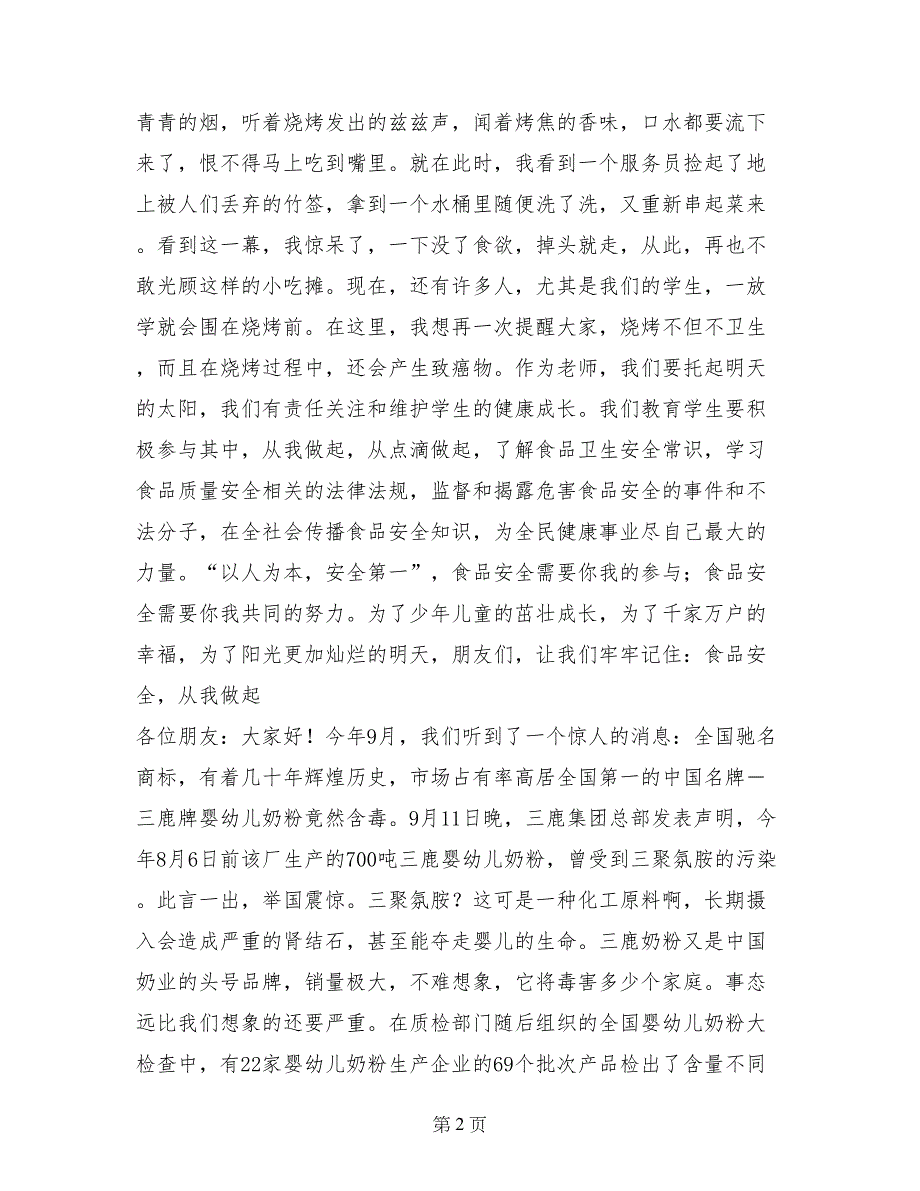 青青的烟，听着烧烤发出的兹兹声，闻着烤焦的香味，口水都要流下
来了，恨不得马上吃到嘴里。就在此时，我看到一个服务员捡起了地
上被人们丢弃的竹签，拿到一个水桶里随便洗了洗，又重新串起菜来
。看到这一幕，我惊呆了，一下没了食欲，掉头就走，从此，再也不
敢光顾这样的小吃摊。现在，还有许多人，尤其是我们的学生，一放
学就会围在烧烤前。在这里，我想再一次提醒大家，烧烤不但不卫生
，而且在烧烤过程中，还会产生致癌物。作为老师，我们要托起明天
的太阳，我们有责任关注和维护学生的健康成长。我们教育学生要积
极参与其中，从我做起，从点滴做起，了解食品卫生安全常识，学习
食品质量安全相关的法律法规，监督和揭露危害食品安全的事件和不
法分子，在全社会传播食品安全知识，为全民健康事业尽自己最大的
力量。“以人为本，安全第一”，食品安全需要你我的参与；食品安
全需要你我共同的努力。为了少年儿童的茁壮成长，为了千家万户的
幸福，为了阳光更加灿烂的明天，朋友们，让我们牢牢记住：食品安
全，从我做起
各位朋友：大家好！今年9月，我们听到了一个惊人的消息：全国驰名
商标，有着几十年辉煌历史，市场占有率高居全国第一的中国名牌－
三鹿牌婴幼儿奶粉竟然含毒。9月11日晚，三鹿集团总部发表声明，今
年8月6日前该厂生产的700吨三鹿婴幼儿奶粉，曾受到三聚氰胺的污染
。此言一出，举国震惊。三聚氰胺？这可是一种化工原料啊，长期摄
入会造成严重的肾结石，甚至能夺走婴儿的生命。三鹿奶粉又是中国
奶业的头号品牌，销量极大，不难想象，它将毒害多少个家庭。事态
远比我们想象的还要严重。在质检部门随后组织的全国婴幼儿奶粉大
检查中，有22家婴幼儿奶粉生产企业的69个批次产品检出了含量不同
第 2 页